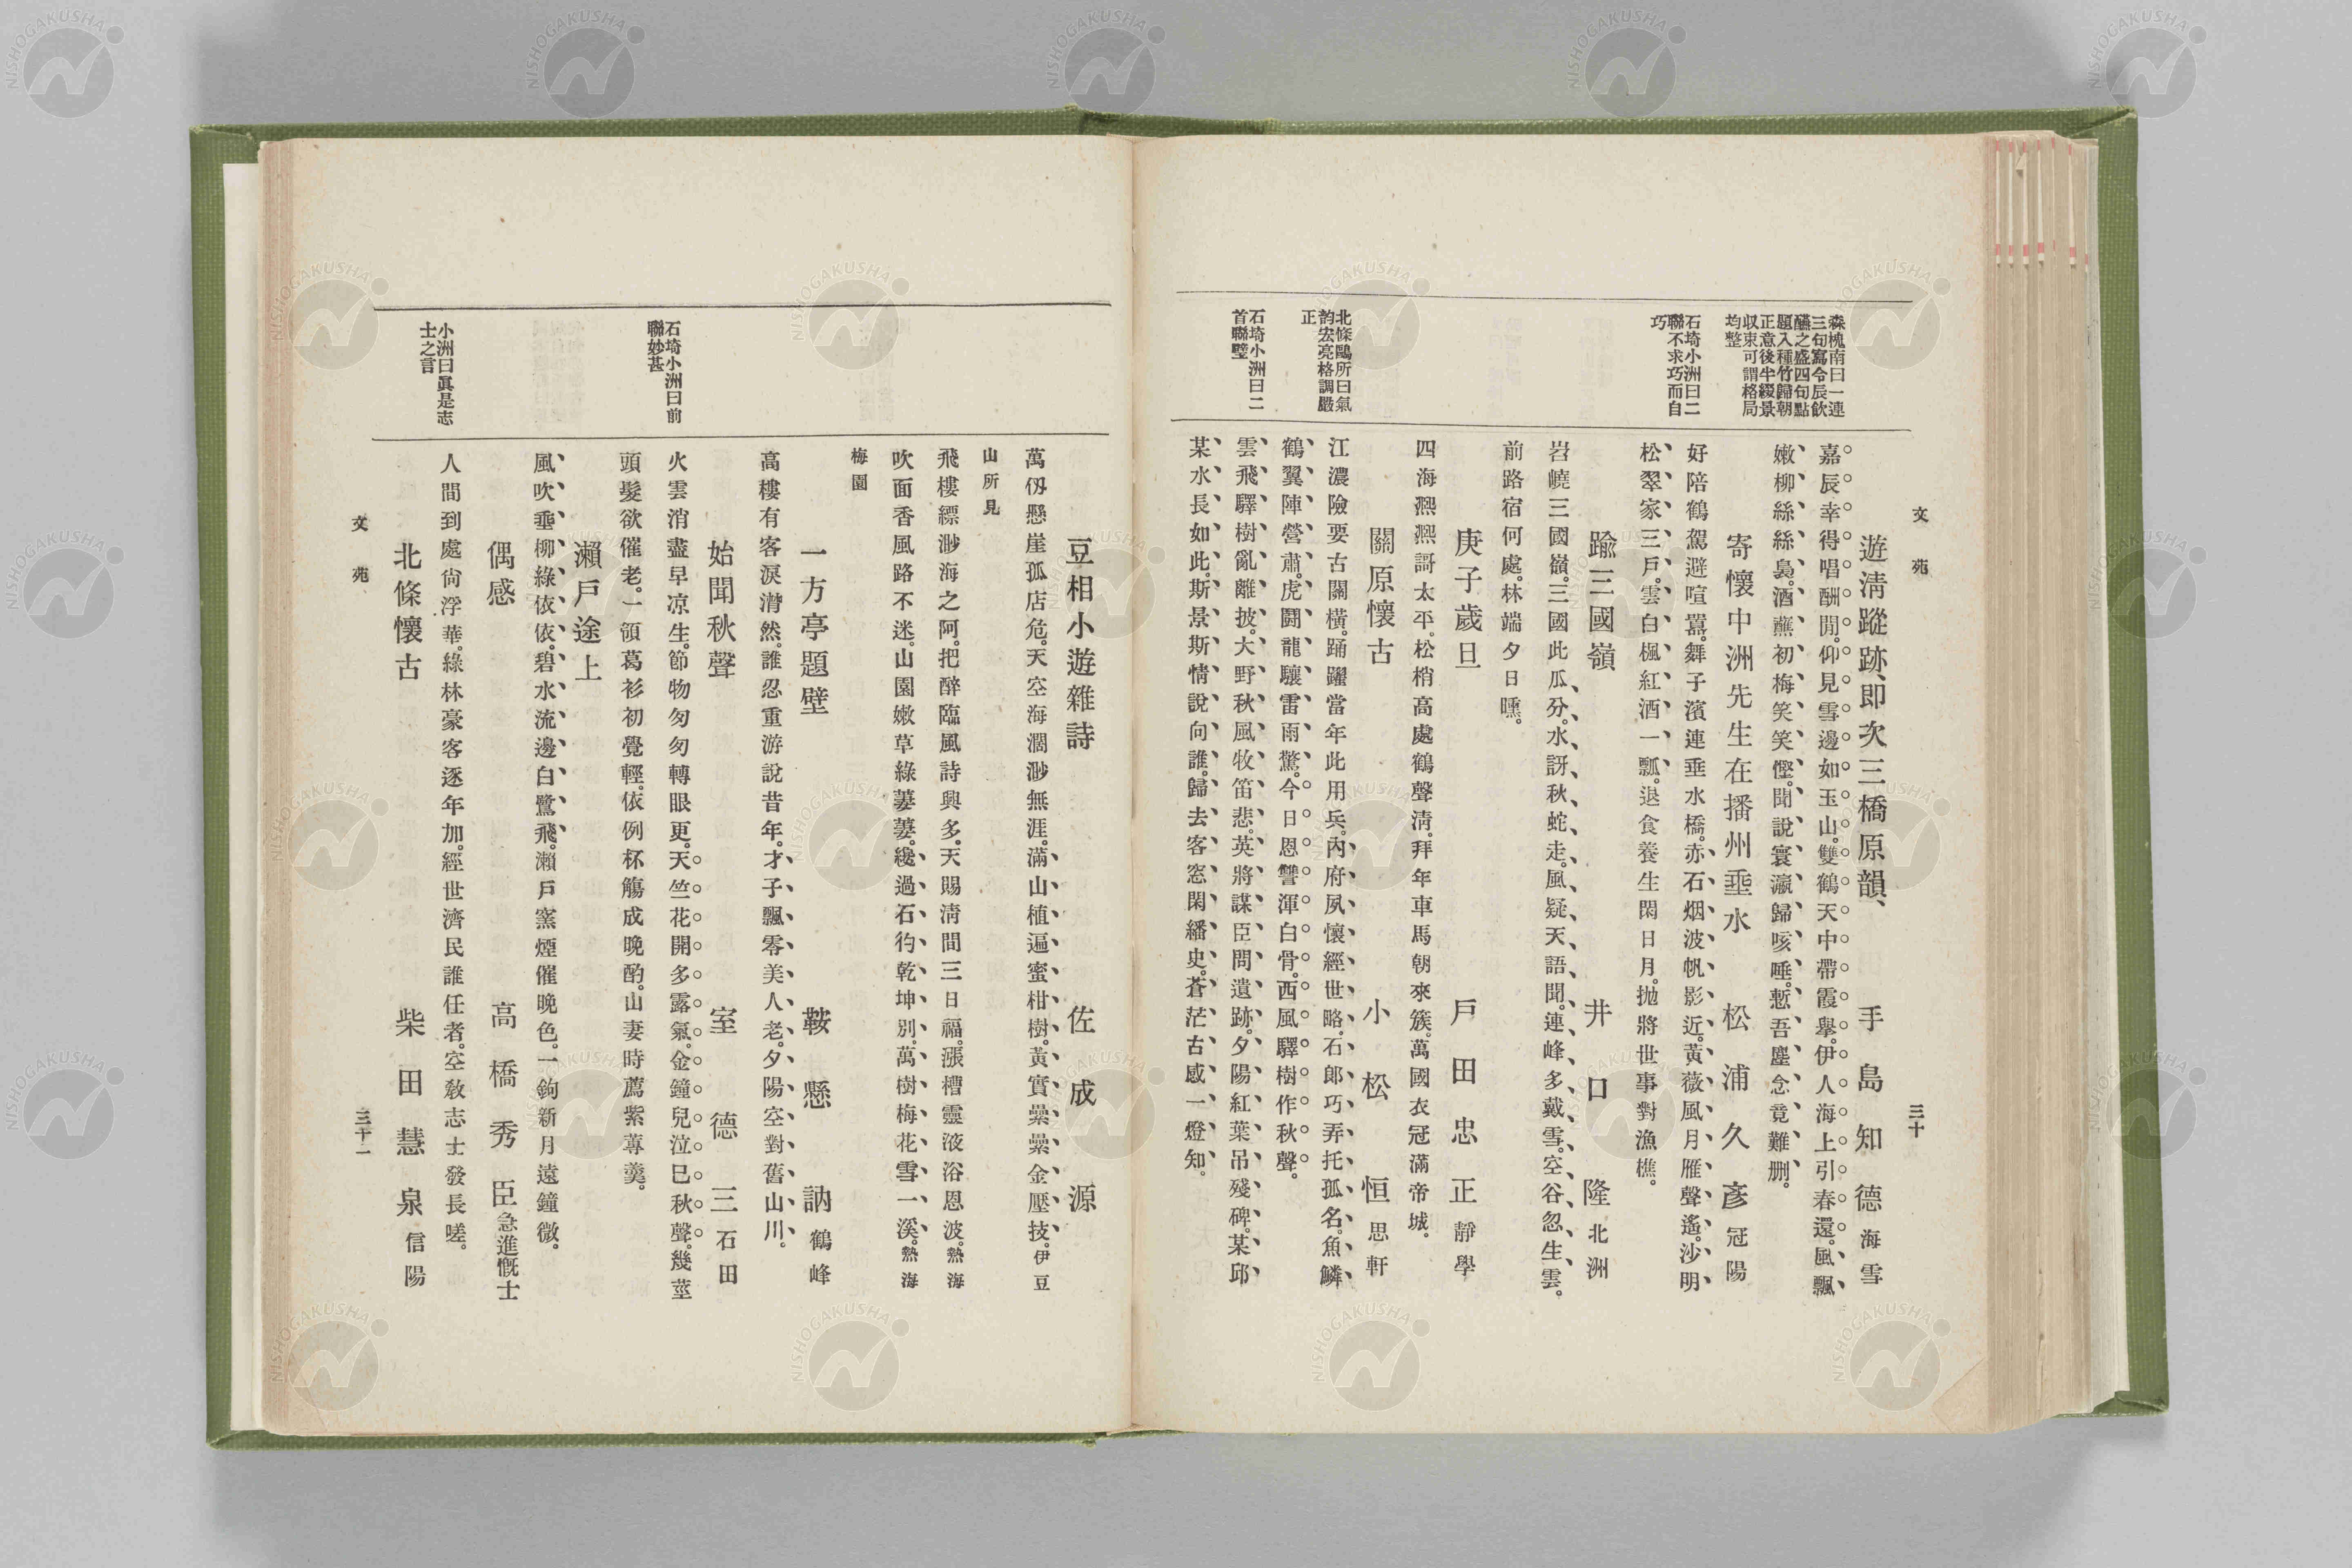 文苑
三十
遊淸蹤跡、卽次三橋原韻、
手島知德海雪
嘉辰幸得唱酬閒。仰見雪邊如玉山。雙鶴天中帶霞擧。伊人海上引春還。風飄
嫩柳絲絲裊。酒蘸初梅笑笑慳。聞說寰瀛歸咳唾。慙吾塵念竟難删。
森槐南曰一連
三句寫令辰飮
醼之盛四句點
題入種竹歸朝
正意後半綴景
収束可謂格局
均整
寄懷中洲先生在播州垂水
松浦久彥冠陽
好陪鶴駕避喧囂。舞子濱連垂水橋。赤石烟波帆影近。黃薇風月雁聲遙。沙明
松翠家三戶。雲白楓紅酒一瓢。退食養生閑日月。抛將世事對漁樵。
石埼小洲曰二
聯不求巧而自
巧
踰三國嶺
井口隆北洲
岧嶢三國嶺。三國此瓜分。水訝秋蛇走。風疑天語聞。連峰多戴雪。空谷忽生雲。
前路宿何處。林端夕日曛。
庚子歲旦
戶田忠正靜學
四海凞凞謌太平。松梢高處鶴聲淸。拜年車馬朝來簇。萬國衣冠滿帝城。
關原懷古
小松恒思軒
江濃險要古關橫。踊躍當年此用兵。內府夙懷經世略。石郎巧弄托孤名。魚鱗
鶴翼陣營肅。虎鬪龍驤雷雨驚。今日恩讐渾白骨。西風驛樹作秋聲。
北條鷗所曰氣
韵宏亮格調嚴
正
雲飛驛樹亂離披。大野秋風牧笛悲。英將謀臣問遺跡。夕陽紅葉吊殘碑。某邱
某水長如此。斯景斯情說向誰。歸去客窓閑繙史。蒼茫古感一燈知。
石埼小洲曰二
首聯璧
豆相小遊雜詩
佐成源
萬仭懸崖孤店危。天空海濶渺無涯。滿山植遍蜜柑樹。黃實纍纍金壓技。伊豆
山所見
飛樓縹渺海之阿。把醉臨風詩興多。天賜淸間三日福。漲槽靈液浴恩波。熱海
吹面香風路不迷。山園嫩草綠萋萋。纔過石彴乾坤別。萬樹梅花雪一溪。熱海
梅園
一方亭題壁
鞍懸訥鶴峰
高樓有客淚潸然。誰忍重游說昔年。才子飄零美人老。夕陽空對舊山川。
始聞秋聲
室德三石田
火雲消盡早凉生。節物匆匆轉眼更。天竺花開多露氣。金鐘兒泣已秋聲。幾莖
頭髮欲催老。一領葛衫初覺輕。依例杯觴成晚酌。山妻時薦紫蓴羹。
石埼小洲曰前
聯妙甚
瀨戶途上
風吹垂柳綠依依。碧水流邊白鷺飛。瀨戶窯煙催晚色。一鉤新月遠鐘微。
偶感
高橋秀臣急進慨士
人間到處尙浮華。綠林豪客逐年加。經世濟民誰任者。空敎志士發長嗟。
小洲曰眞是志
士之言
北條懷古
柴田慧泉信陽
文苑
三十一